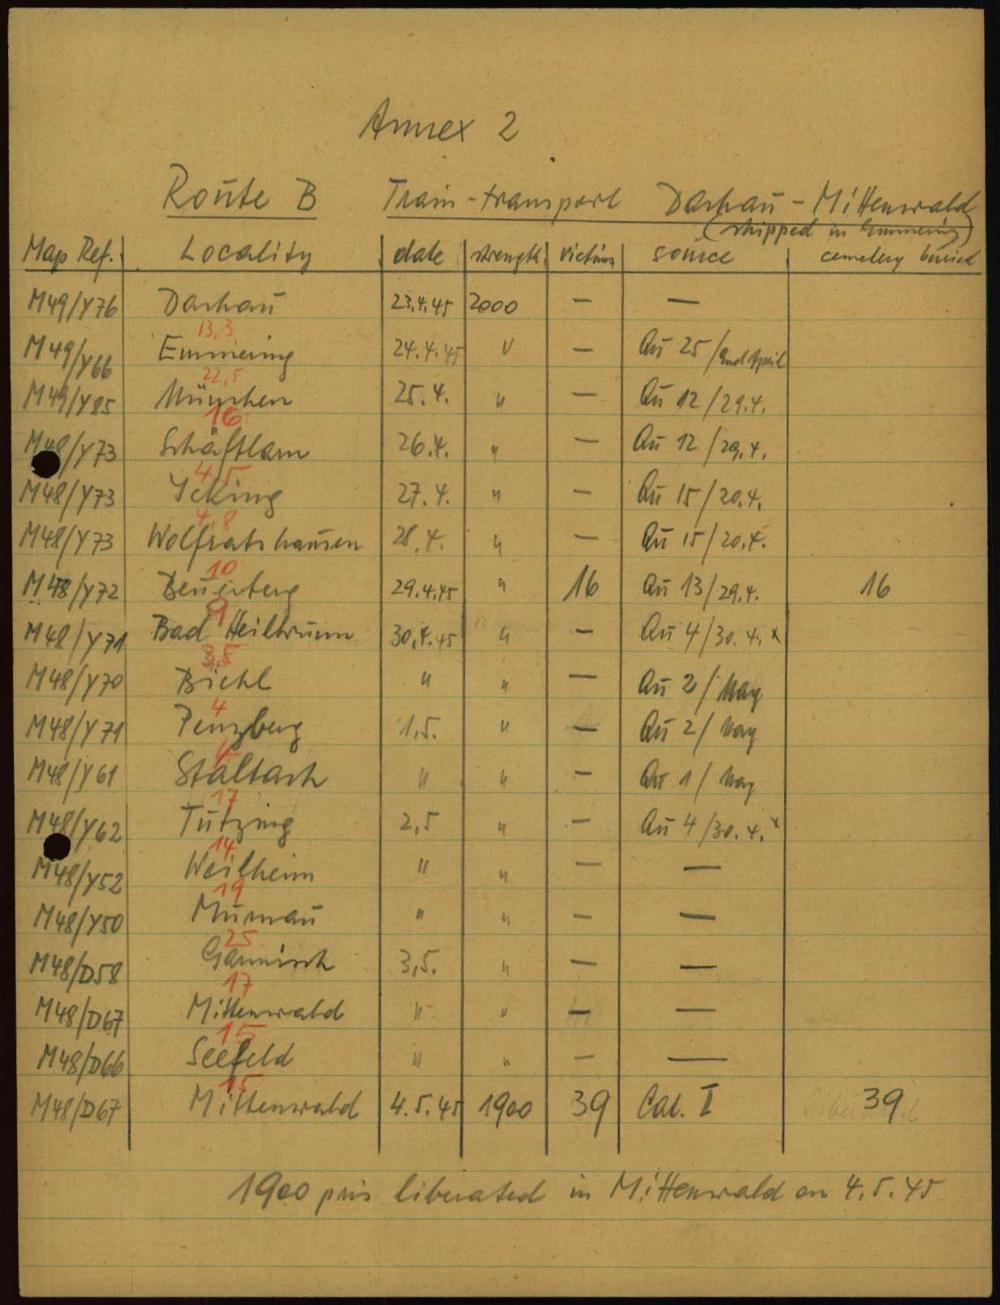 Annex 2
Route B Train-transport Dachau - Mittenwald
(shipped in Emmering)
Map Ref. Locality date strength victims source cemetery buried
M49/Y76 Dachau 23.4.45 2000 — —
13,3
M49/Y66 Emmering 24.4.45 " — Qu 25/End April
22,5
M49/Y85 München 25.4. " — Qu 12/29.4.
16
M48/Y73 Schäftlarn 26.4. " — Qu 12/29.4.
4,5
M48/Y73 Icking 27.4. " — Qu 15/20.4.
4,8
M48/Y73 Wolfratshausen 28.4. " — Qu 15/20.4.
10
M48/Y72 Beuerberg 29.4.45 " 16 Qu 13/29.4. 16
9
M48/Y71 Bad Heilbrunn 30.4.45 " — Qu 4/30.4. x
3,5
M48/Y70 Bichl " " — Qu 2/May
4
M48/Y71 Penzberg 1.5. " — Qu 2/May
M48/Y61 Staltach " " — Qu 1/May
17
M48/Y62 Tutzing 2,5 " — Qu 4/30.4. x
14
M48/Y52 Weilheim " " — —
19
M48/Y50 Murnau " " — —
25
M48/D58 Garmisch 3,5. " — —
17
M48/D67 Mittenwald " " — —
15
M48/D66 Seefeld " " — —
15
M48/D67 Mittenwald 4.5.45 1900 39 Cal. I 39
1900 pris liberated in Mittenwald on 4.5.45